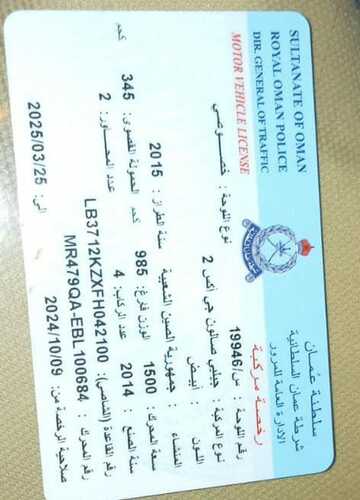 سلطنة عمان
شرطة عمان السلطانية
الادارة العامة للمرور
رخصة مركبة
SULTANATE OF OMAN
ROYAL OMAN POLICE
DIR. GENERAL OF TRAFFIC
MOTOR VEHICLE LICENSE
رقم اللوحة : 19946/س نوع اللوحة : خصوصي
نوع المركبة : جيلي صالون جي اكس 2
اللون : أبيض
المنشاء : جمهورية الصين الشعبية
سعة المحرك: 1500 الوزن فارغ: 985 كجم الحمولة القصوى: 345 كجم
سنة الصنع : 2014 سنة الطراز : 2015
عدد الركاب: 4 عدد المحاور: 2
رقم القاعدة (الشاصي): LB3712KZXFH042100
رقم المحرك : MR479QA-EBL100684
صلاحية الرخصة من: 2024/10/09 الى: 2025/03/25